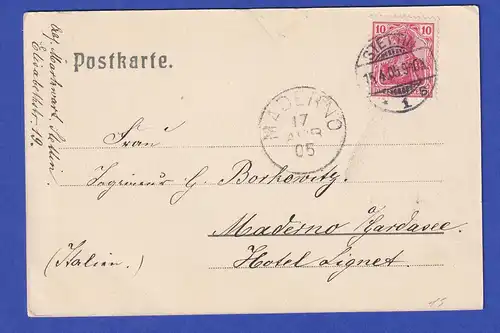 Abs. Markwart, Stettin
Elisabethstr. 19.
Postkarte.
10 10
STETTIN
15.4.05.
* 1 b
MADERNO
17
APR
05
Frau
Ingenieur G. Borkowitz
Maderno a/Gardasee.
(Italien.) Hotel Lignet.
15